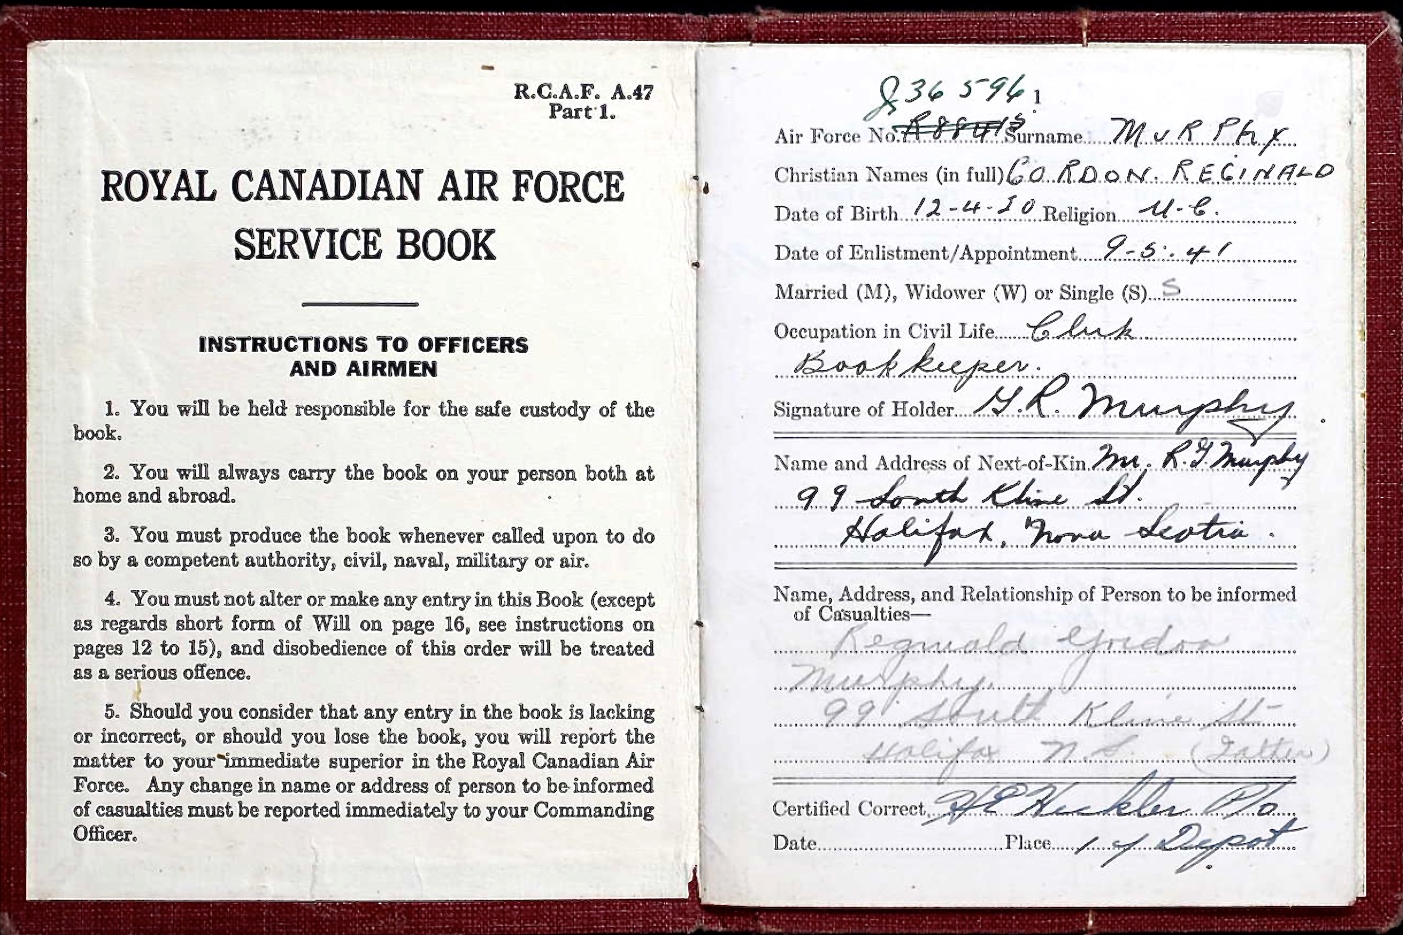 R.C.A.F. A.47
Part 1.
ROYAL CANADIAN AIR FORCE
SERVICE BOOK
INSTRUCTIONS TO OFFICERS
AND AIRMEN
1. You will be held responsible for the safe custody of the
book.
2. You will always carry the book on your person both at
home and abroad.
3. You must produce the book whenever called upon to do
so by a competent authority, civil, naval, military or air.
4. You must not alter or make any entry in this Book (except
as regards short form of Will on page 16, see instructions on
pages 12 to 15), and disobedience of this order will be treated
as a serious offence.
5. Should you consider that any entry in the book is lacking
or incorrect, or should you lose the book, you will report the
matter to your immediate superior in the Royal Canadian Air
Force. Any change in name or address of person to be informed
of casualties must be reported immediately to your Commanding
Officer.
J36596 1
Air Force No. R88413 Surname MURPHY
Christian Names (in full) GORDON. REGINALD
Date of Birth 12-4-20 Religion U.C.
Date of Enlistment/Appointment 9-5-41
Married (M), Widower (W) or Single (S) S
Occupation in Civil Life Clerk
Bookkeeper.
Signature of Holder G.R. Murphy
Name and Address of Next-of-Kin Mr. R.G Murphy
99 South Kline St.
Halifax, Nova Scotia.
Name, Address, and Relationship of Person to be informed
of Casualties—
Reginald Gordon
Murphy.
99 South Kline St
Halifax N.S. (Father)
Certified Correct P/O
Date Place 1 Y Depot